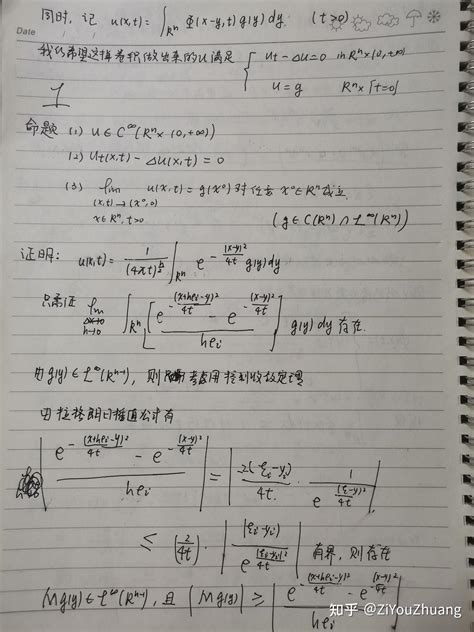 同时,记 u(x,t) = ∫_{Rⁿ} Φ(x-y,t) g(y) dy. (t>0)
Date
我们希望这样卷积做出来的u满足 { u_t - Δu = 0 in Rⁿ×(0,+∞)
u = g Rⁿ×{t=0}
命题 (1) u ∈ C^∞(Rⁿ×(0,+∞))
(2) u_t(x,t) - Δu(x,t) = 0
(3) lim_{(x,t)→(x⁰,0), x∈Rⁿ, t>0} u(x,t) = g(x⁰) 对任意 x⁰∈Rⁿ成立
(g∈C(Rⁿ)∩L^∞(Rⁿ))
证明: u(x,t) = 1/(4πt)^{n/2} ∫_{Rⁿ} e^{-(x-y)²/4t} g(y) dy
只需证 lim_{h→0} ∫_{Rⁿ} [ (e^{-(x+he_i-y)²/4t} - e^{-(x-y)²/4t}) / he_i ] g(y) dy 存在.
由 g(y) ∈ L^∞(R^{n-1}), 则 考虑用控制收敛定理
由拉格朗日插值公式有
| (e^{-(x+he_i-y)²/4t} - e^{-(x-y)²/4t}) / he_i | = | 2(ξ_i-y_i)/4t · 1/e^{(ξ-y)²/4t} |
≤ (2/4t) · | (ξ_i-y_i) / e^{(ξ_i-y_i)²/4t} | 有界, 则存在
Mg(y) ∈ L^∞(R^{n-1}), 且 |Mg(y)| ≥ | (e^{-(x+he_i-y)²/4t} - e^{-(x-y)²/4t}) / he_i |
知乎 @ZiYouZhuang